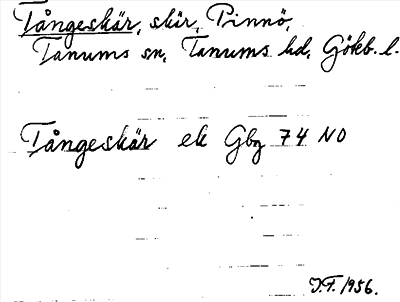 Tångeskär, skär, Pinnö,
Tanums sn, Tanums hd, Göteb. l.
Tångeskär ek Gbg 74 NO
J.F. 1956.